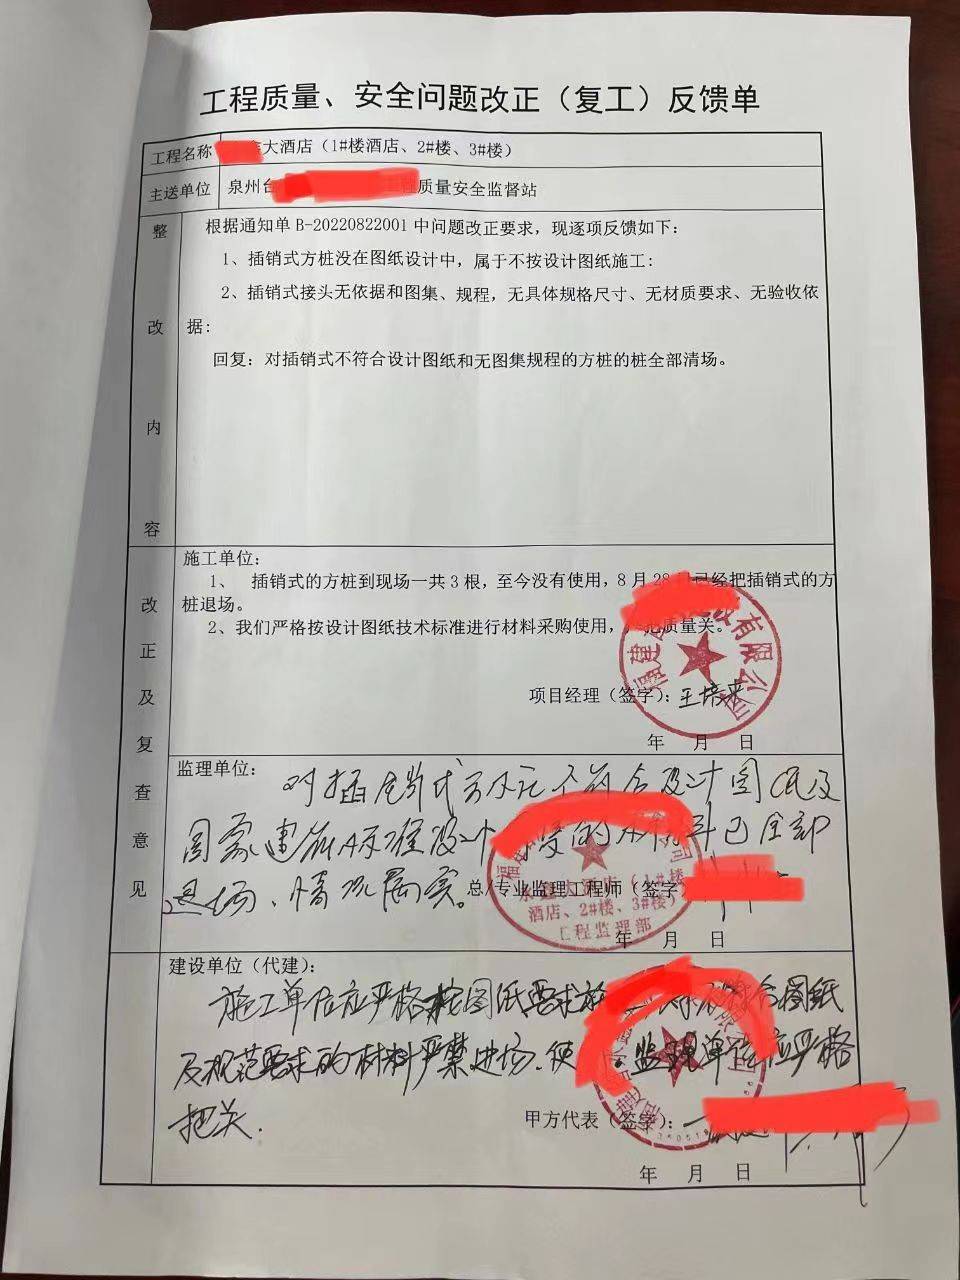 工程质量、安全问题改正（复工）反馈单
工程名称 大酒店（1#楼酒店、2#楼、3#楼）
主送单位 泉州台 质量安全监督站
整改内容
根据通知单 B-20220822001 中问题改正要求，现逐项反馈如下：
1、插销式方桩没在图纸设计中，属于不按设计图纸施工:
2、插销式接头无依据和图集、规程，无具体规格尺寸、无材质要求、无验收依
据:
回复：对插销式不符合设计图纸和无图集规程的方桩的桩全部清场。
改正及复查意见
施工单位：
1、 插销式的方桩到现场一共3根，至今没有使用，8月28 已经把插销式的方
桩退场。
2、我们严格按设计图纸技术标准进行材料采购使用， 把质量关。
福建 有限公司
项目经理（签字）：王培来
年 月 日
监理单位：
对插销式方桩不符合设计图纸及
图集建筑标准设计 要的 已全部
退场、情况属实。
总/专业监理工程师（签字
大酒店（1#楼
酒店、2#楼、3#楼）
工程监理部
年 月 日
建设单位（代建）：
施工单位应严格按图纸要求施 对不符合图纸
及规范要求的材料严禁进场. 监理单位应严格
把关.
甲方代表（签字）：
年 月 日